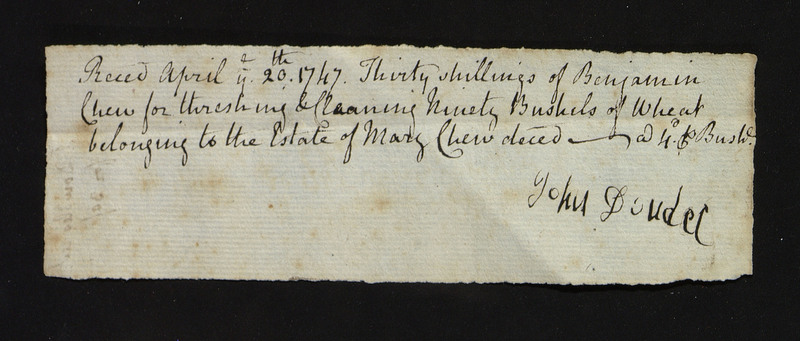 Reced April ye 20th. 1747. Thirty shillings of Benjamin
Chew for threshing & Cleaning Ninety Bushels of Wheat
belonging to the Estate of Mary Chew deced — @ 4d. ⅌ Bushl.
John Doudel